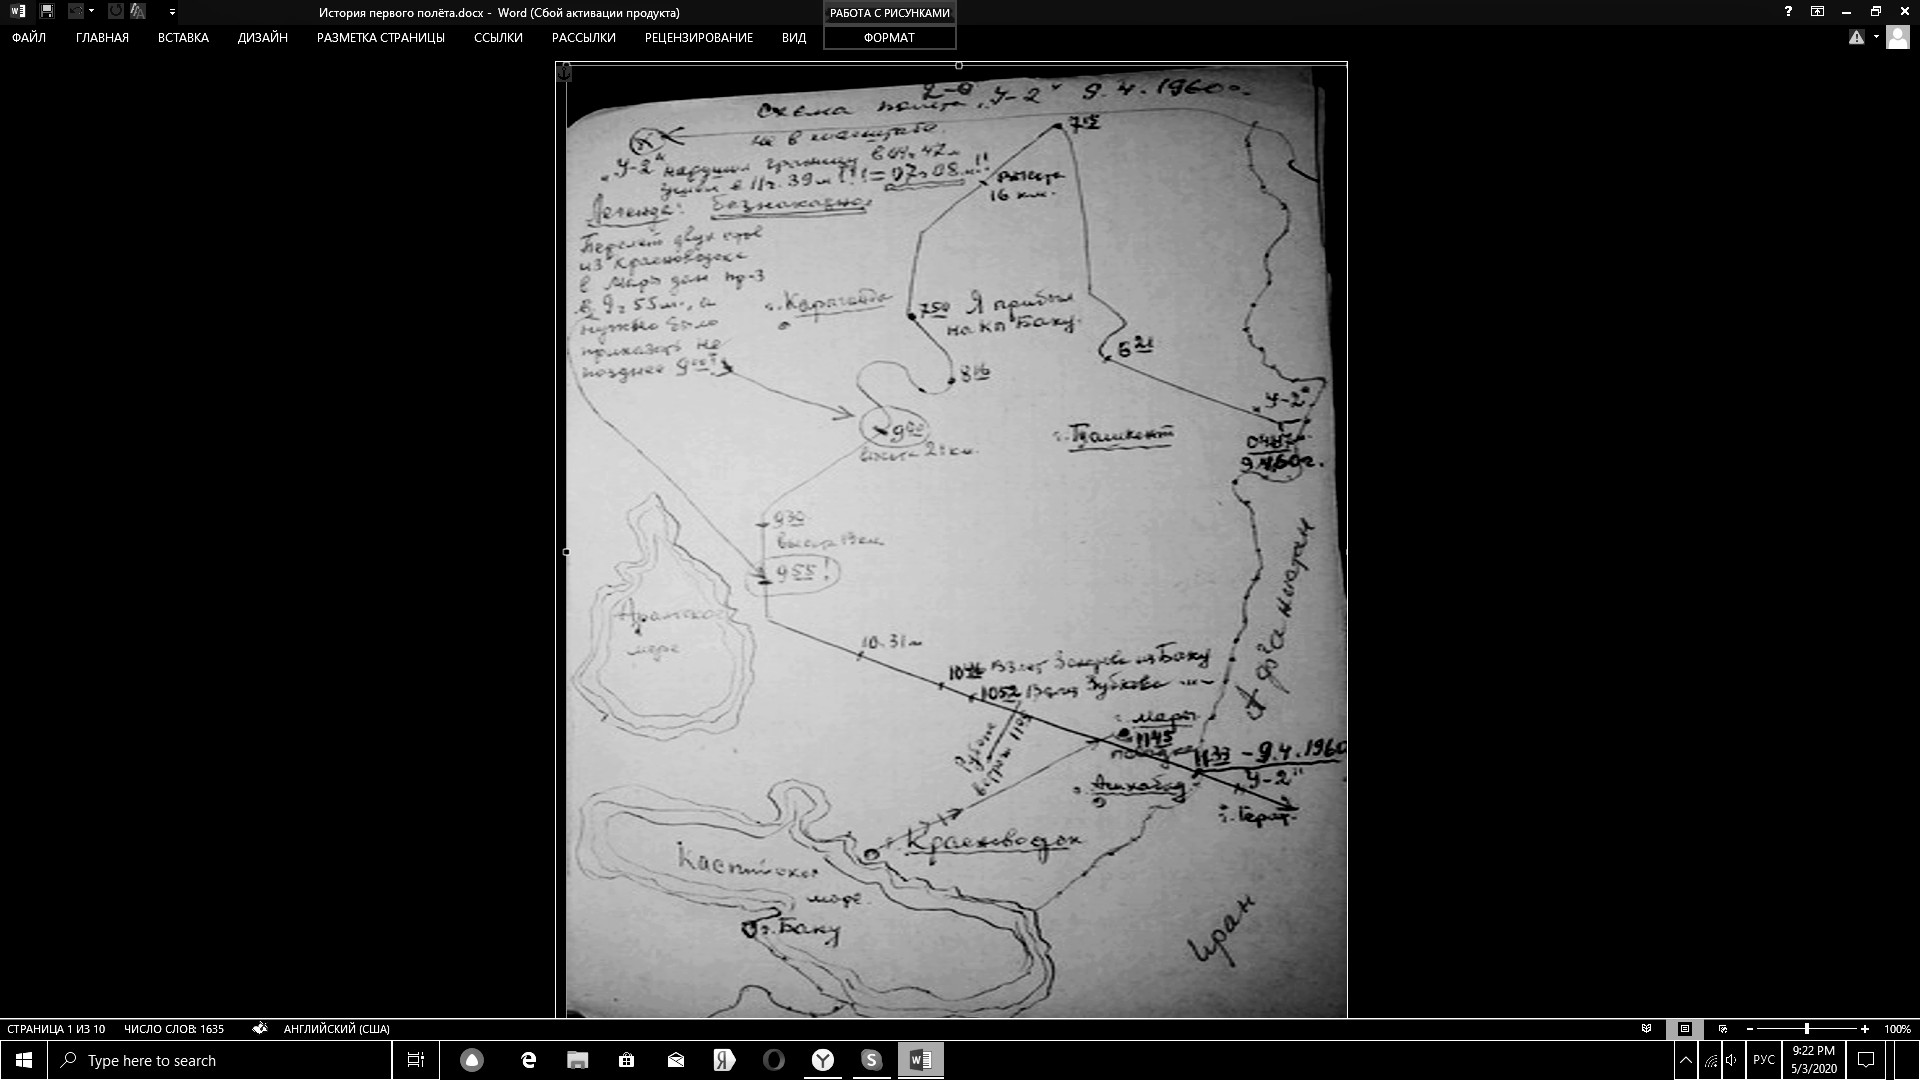 История первого полёта.docx - Word (Сбой активации продукта)
РАБОТА С РИСУНКАМИ
ФАЙЛ ГЛАВНАЯ ВСТАВКА ДИЗАЙН РАЗМЕТКА СТРАНИЦЫ ССЫЛКИ РАССЫЛКИ РЕЦЕНЗИРОВАНИЕ ВИД ФОРМАТ
Схема полёта "У-2" 9.4.1960г.
не в масштабе
"У-2" нарушил границу в 04ч 47м
ушёл в 11ч. 39м !!!= 07ч 08 м!!
Легенда: Безнаказно
Перелёт двух
из Красноводска
в Мары дан пр-з
в 9ч 55м., а
нужно было
приказать не
позднее 9 00!
7 15
Высота
16 км.
г. Караганда
7 50 Я прибыл
на КП Баку
6 21
8 16
"У-2"
9 00
высота 20 км.
г. Ташкент
04 47
9.4.60г.
9 30
высота 19 км
9 55!
Аральское
море
Афганистан
10.31м
10 46 Взлет из Баку
10 52 Взлет Зубкова -"-
Рубеж
встречи 11 05
г. Мары
11 45
посадка
11 33 - 9.4.1960
"У-2"
г. Ашхабад
г. Герат
г. Красноводск
Каспийское
море
г. Баку
Иран
СТРАНИЦА 1 ИЗ 10 ЧИСЛО СЛОВ: 1635 АНГЛИЙСКИЙ (США) 100%
Type here to search
РУС
9:22 PM
5/3/2020